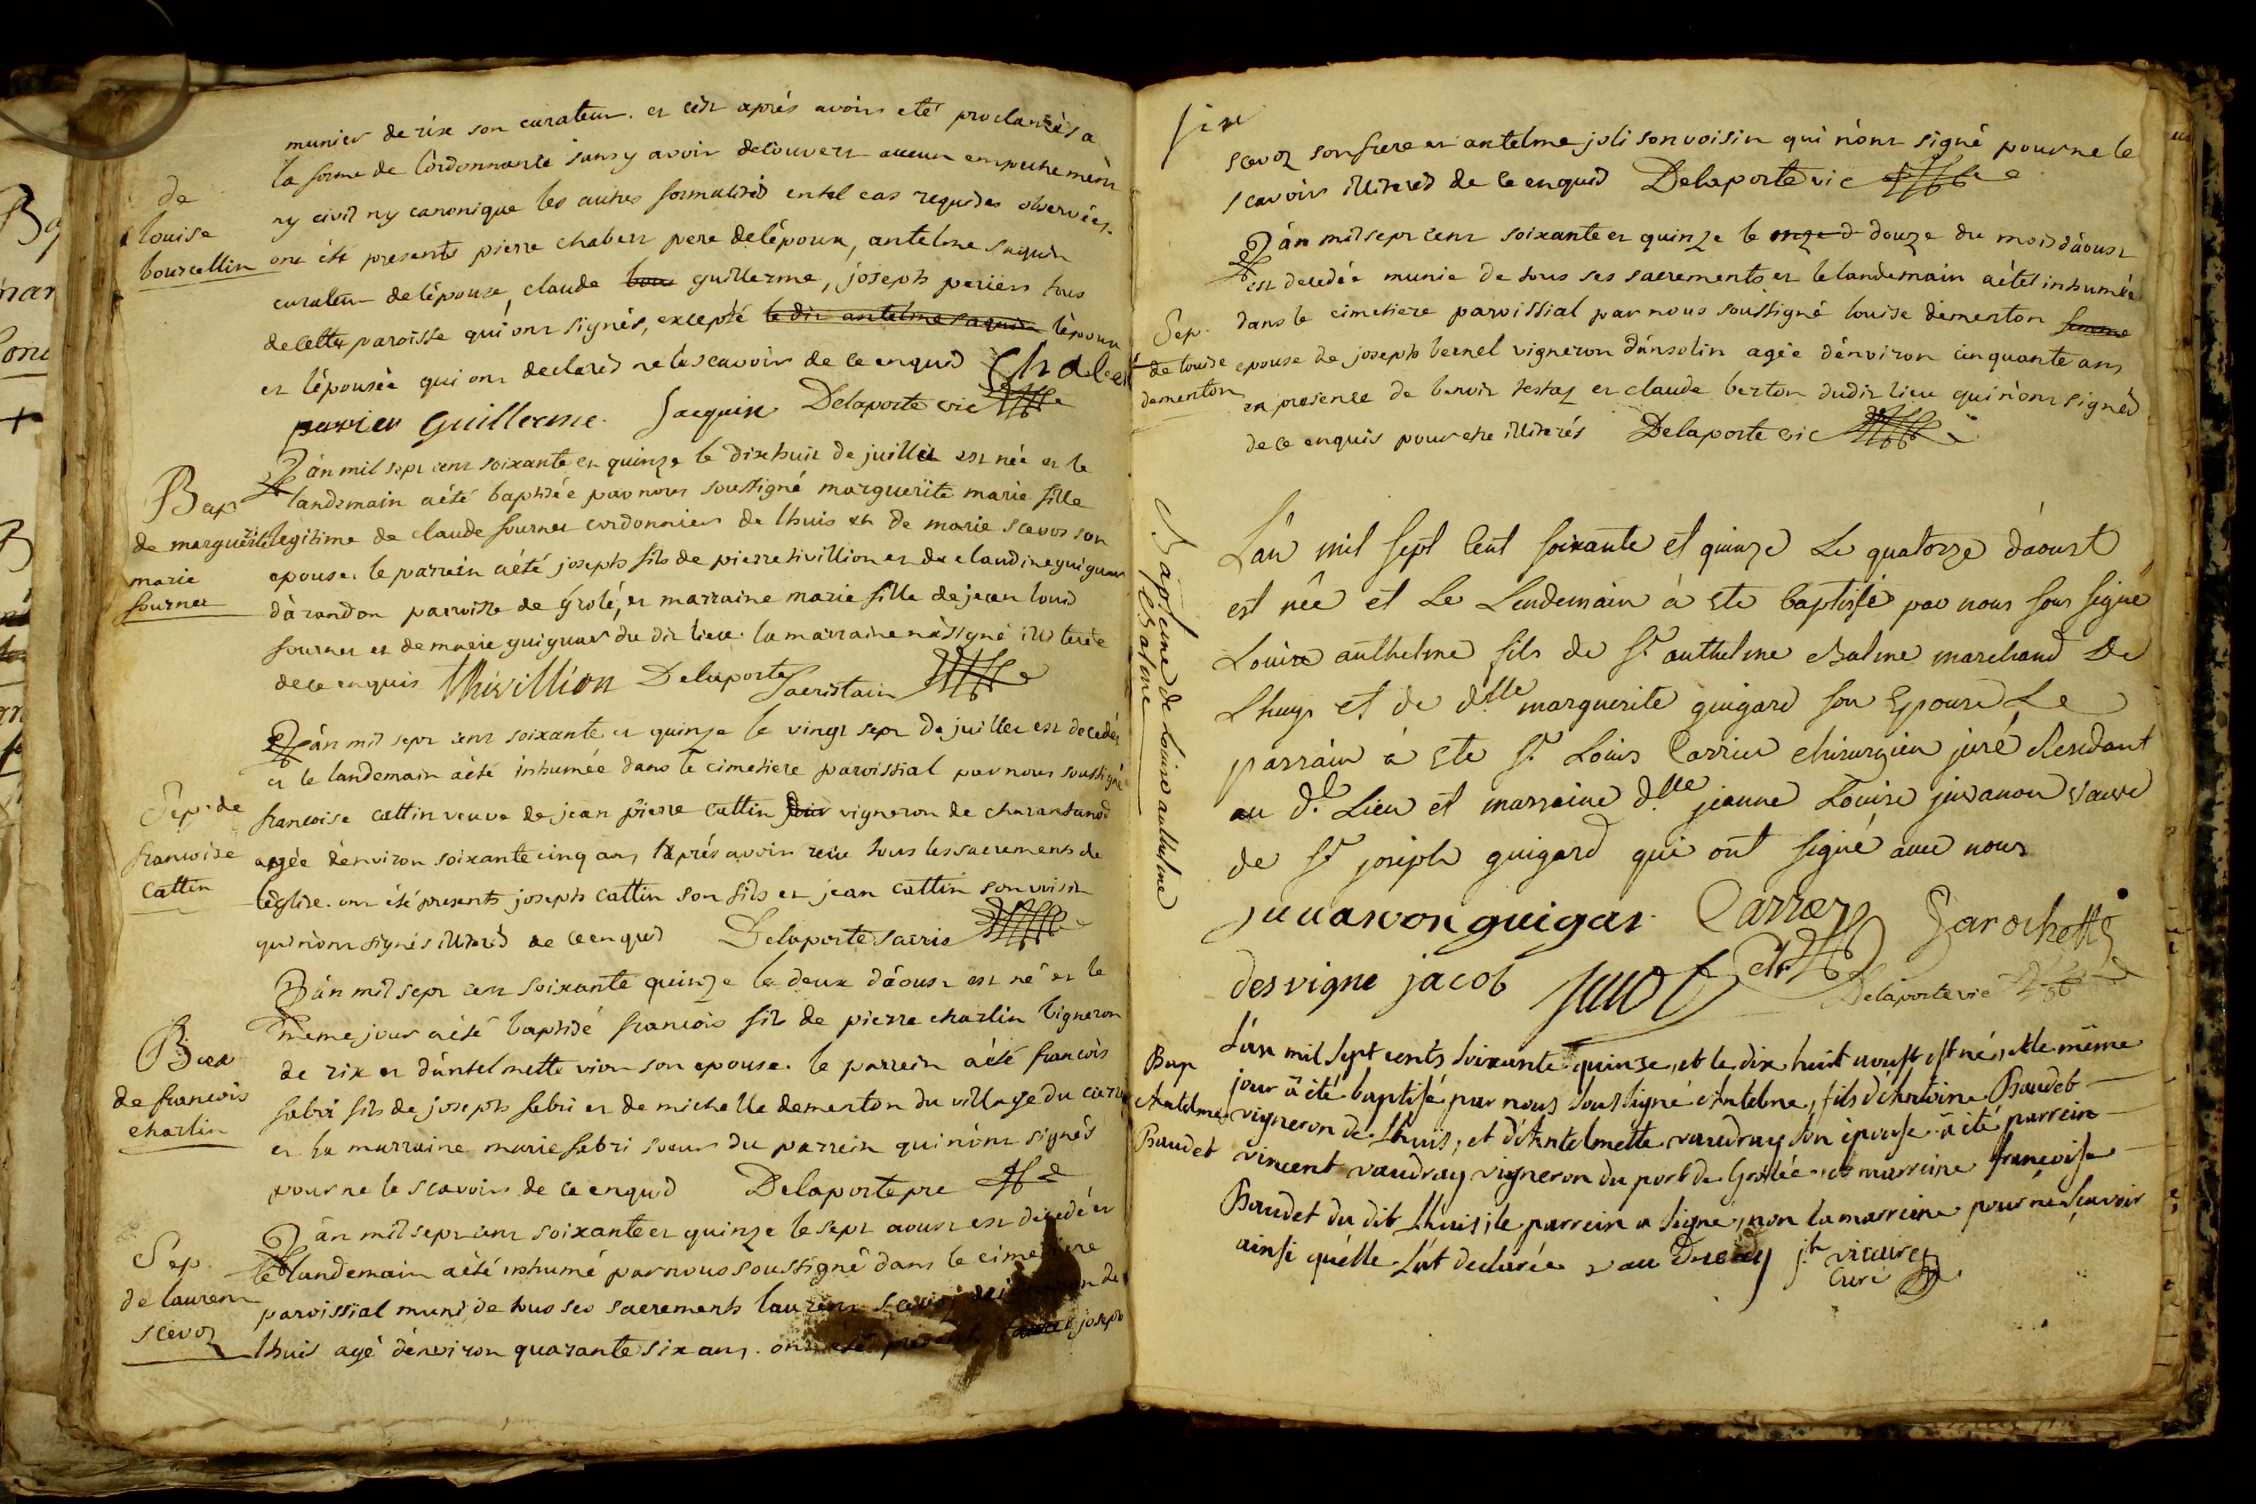 munier de rix son curateur. et cest aprés avoir eté proclamés a
la forme de lórdonnance sans y avoir decouvert aucun empechement
ny civil ny canonique les autres formalités en tel cas requises observées.
de
louise
bourcellin
ont été presents pierre chabert pere de lépoux, antelme
curateur de lépouse, claude guillerme, joseph perier tous
de cette paroisse qui ont signés, excepté le dit antelme lépoux
et lépousée qui ont declarés ne le scavoir de ce enquis
perier Guillerme. Jacquin Delaporte vic
Bap
de marguerite
marie
fournet
Lán mil sept cent soixante et quinze le dixhuit de juillet est née et le
landemain aété baptisée par nous soussigné marguerite marie fille
legitime de claude fournet cordonnier de lhuis et de marie scavoz son
epouse. le parrein aété joseph fils de pierre tivillion et de claudine guiguer
dárandon parroisse de grolé, et marraine marie fille de jean louis
fournet et de marie guiguer du dit lieu. la marraine násigné illiterée
de ce enquis thivillion Delaporte Sacristain
Sep. de
francoise
cattin
Lán mil sept cent soixante et quinze le vingt sept de juillet est decedée
et le landemain aété inhumée dans le cimetiere paroissial par nous soussigné
francoise cattin veuve de jean pierre cattin vigneron de
agée dénviron soixante cinq ans aprés avoir recu tous les sacrements de
léglise. ont été presents joseph cattin son fils et jean cattin son voisin
qui nónt signés illiterés de ce enquis Delaporte sacris
Bap
de francois
charlin
Lán mil sept cent soixante quinze le deux dáoust est né et le
meme jour aété baptisé francois fils de pierre charlin vigneron
de rix et dántelmette vion son epouse. le parrein aété francois
fabri fils de joseph fabri et de michelle demerton du village du
et la marraine marie fabri soeur du parrein qui nónt signés
pour ne le scavoir de ce enquis Delaporte pre
Sep.
de laurent
scavoz
Lán mil sept cent soixante et quinze le sept aoust est decedé et
le landemain aété inhumé par nous soussigné dans le cimetiere
paroissial muni de tous ses sacrements laurent scavoz de
lhuis agé dénviron quarante six ans. ont été presents joseph
six
scavoz son frere et antelme joli son voisin qui nónt signé pour ne le
scavoir illiterés de ce enquis Delaporte vic
Sep.
de louise
demerton
Lán mil sept cent soixante et quinze le onze d douze du mois dáoust
est decedée munie de tous ses sacrements et le landemain aété inhumée
dans le cimetiere paroissial par nous soussigné louise demerton femme
epouse de joseph bernel vigneron dánsolin agée dénviron cinquante ans
en presence de benoit testaz et claude berton dudit lieu qui nónt signés
de ce enquis pour etre illiterés Delaporte vic
Bapteme de Louise anthelme
chalme
L'an mil sept Cent soixante et quinze Le quatorze d'aoust
est née et Le Lendemain à Eté baptisé par nous sous signé
Louise anthelme fils de Sr. anthelme chalme marchand De
Lhuys et de dlle marguerite guigard son Epouse Le
parrain à Eté Sr. Louis Carrier chirurgien juré Résidant
au d. Lieu et marraine dlle jeanne Louise juvanon veuve
de Sr joseph guigard qui ont signé avec nous
juuanon guigar Carrier Larochette
desvigne jacob
Delaporte vic
Bap
Antelme
Baudet
L'an mil sept cents soixante quinze, et le dix huit aoust est né, et le même
jour à été baptisé par nous soussigné Antelme, fils d'Antoine Baudet
vigneron de Lhuis, et d'Antelmette vaudray son épouse à été parrein
vincent vaudray vigneron du port de Grolée et marreine françoise
Baudet du dit Lhuis; le parrein a signé, non la marreine pour ne sçavoir
ainsi qu'elle l'at declarée vaudray jh vicaire
Curé